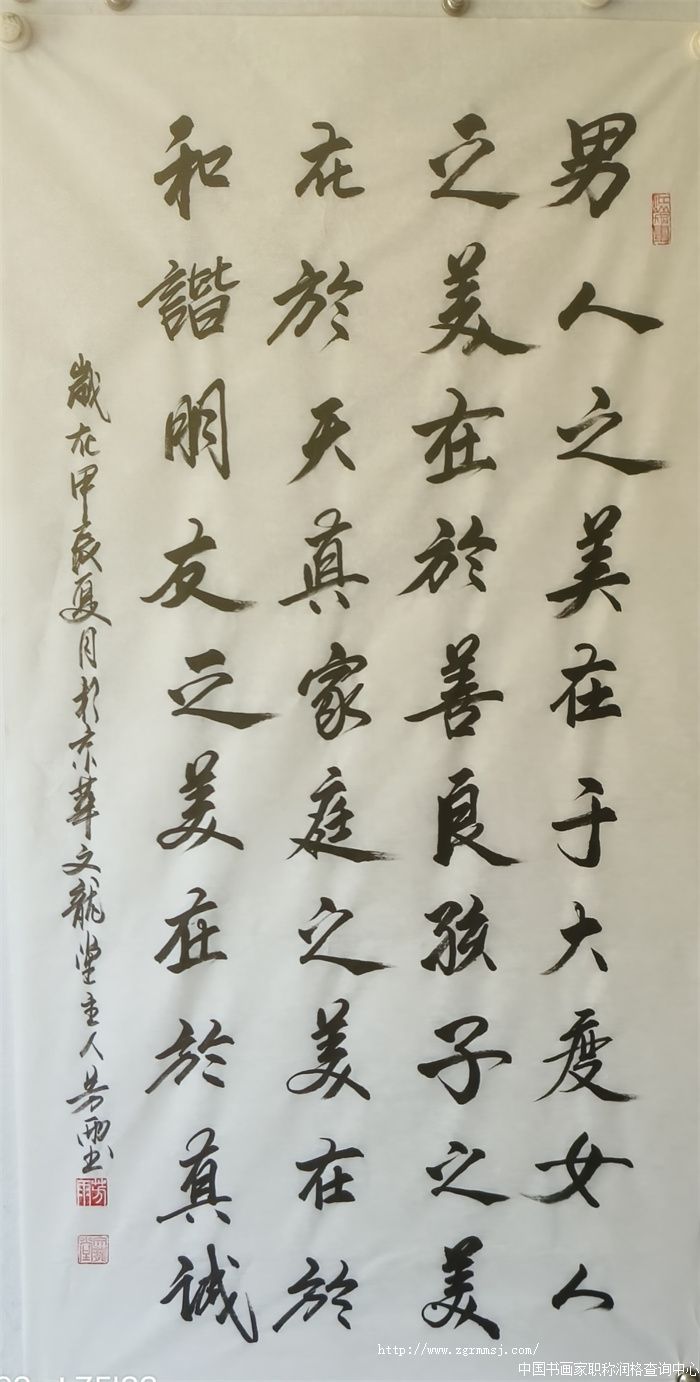 男人之美在于大度女人
之美在於善良孩子之美
在於天真家庭之美在於
和諧朋友之美在於真诚
歲在甲辰夏月於京華文龍堂主人芳雨书
芳雨
http://www.zgrmmsj.com/
中国书画家职称润格查询中心